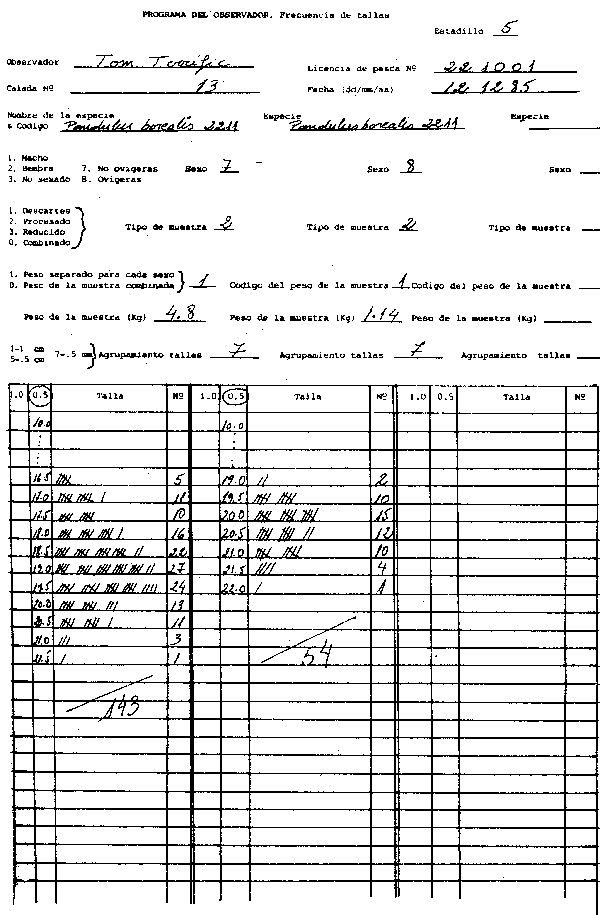 PROGRAMA DEL OBSERVADOR. Frecuencia de tallas
Estadillo 5
Observador Tom Tooific Licencia de pesca Nº 221001
Calada Nº 13 Fecha (dd/mm/aa) 121285
Nombre de la especie Especie Especie
& Codigo Pandulus borealis 2211 Pandulus borealis 2211
1. Macho
2. Hembra 7. No ovigeras Sexo 7 Sexo 8 Sexo
3. No sexado 8. Ovigeras
1. Descartes
2. Procesado Tipo de muestra 2 Tipo de muestra 2 Tipo de muestra
3. Reducido
0. Combinado
1. Peso separado para cada sexo
0. Peso de la muestra combinada 1 Codigo del peso de la muestra 1 Codigo del peso de la muestra
Peso de la muestra (Kg) 4.8 Peso de la muestra (Kg) 1.14 Peso de la muestra (Kg)
1-1 cm 7-.5 cm Agrupamiento tallas 7 Agrupamiento tallas 7 Agrupamiento tallas
5-.5 cm
1.0 0.5 Talla Nº 1.0 0.5 Talla Nº 1.0 0.5 Talla Nº
10.0 10.0
16.5 5 19.0 2
17.0 11 19.5 10
17.5 10 20.0 15
18.0 16 20.5 12
18.5 22 21.0 10
19.0 27 21.5 4
19.5 24 22.0 1
20.0 13
20.5 11
21.0 3
21.5 1
54
143